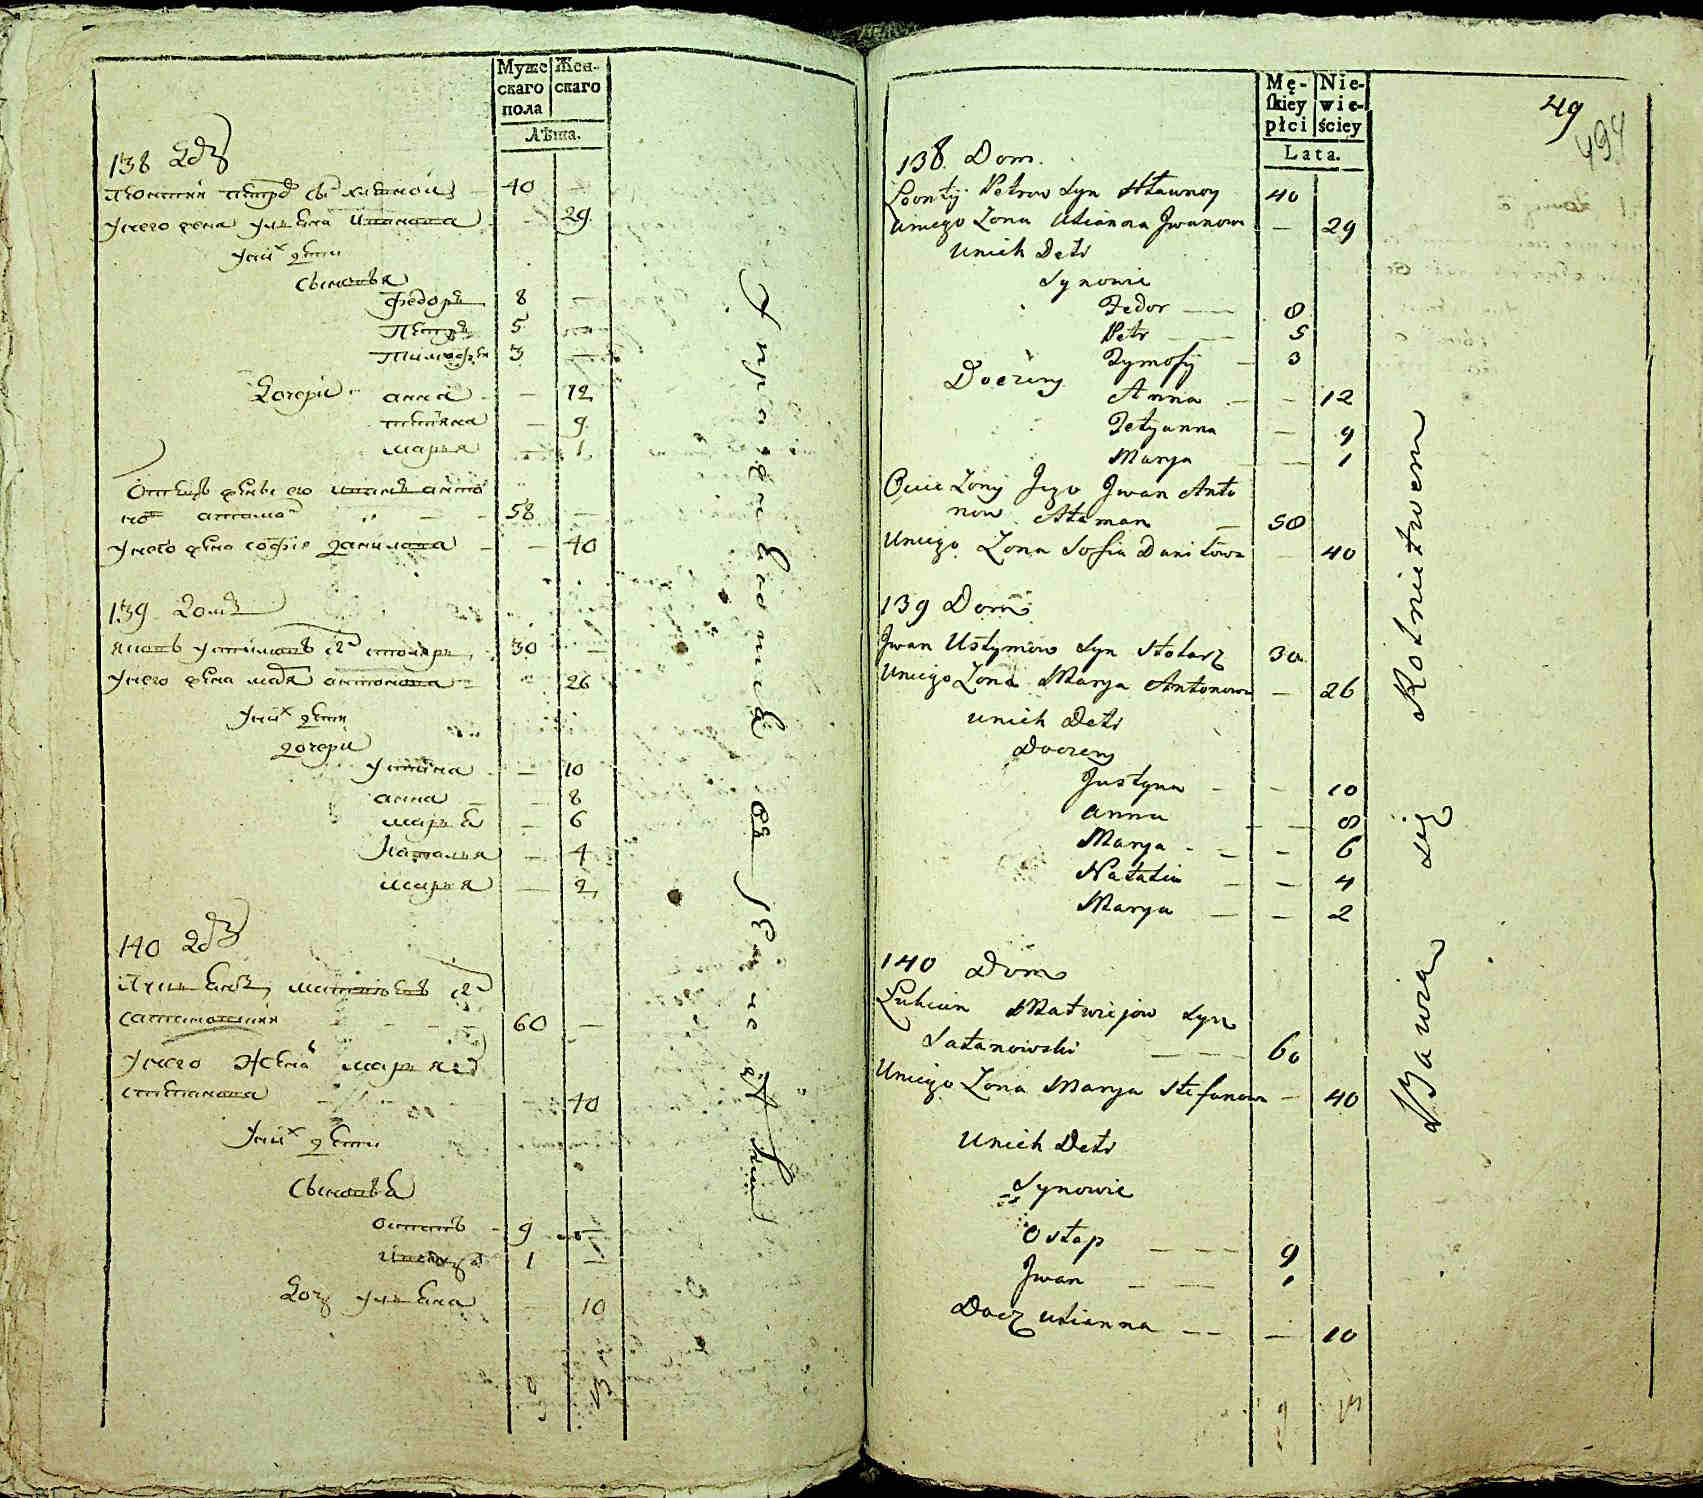 Муже
скаго
пола
Жен-
скаго
Лѣта.
138 Домъ
40
у него жена Ульяна Иванова 29
у них дети
Сыновья
Федоръ 8
Петръ 5
Тимофей 3
Дочери анна 12
татіяна 9
марья 1
Отецъ жены его иванъ анто
новъ атаманъ 58
у него жена софія данилова 40
139 Домъ
иванъ устимовъ сынъ столяръ 30
у него жена марья антонова 26
у них дети
дочери
устина 10
анна 8
марья 6
Наталья 4
марья 2
140 Домъ
Лукьянъ матвеевъ сынъ
сатановский 60
у него жена марья
степанова 40
у них дети
Сыновья
остапъ 9
иванъ 1
Дочь ульяна 10
упражняются в земледелии
Mę-
ſkiey
płci
Nie-
wie-
ściey
Lata.
49
494
138 Dom.
Leonty Petrow Syn 40
Uniego Zona Ulianna Jwanowa — 29
Unich Deti
Synowie
Fedor — 8
Petr — 5
Tymofiy — 3
Doczery
Anna — 12
Tetyanna — 9
Marya — 1
Oyciec Zony Jego Jwan Anto
now Ataman — 58
Uniego Zona Sofia Daniłowa — 40
139 Dom
Jwan Ustymow Syn Stolarz 30
Uniego Zona Marya Antonowa — 26
unich Deti
Doczery
Justyna — 10
Anna — 8
Marya — 6
Natalia — 4
Marya — 2
140 Dom
Lukian Matwiejow Syn
Satanowski — 60
Uniego Zona Marya Stefanowa — 40
Unich Deti
Synowie
Ostap — 9
Jwan — 1
Docz Ulianna — 10
Bawia się Rolnictwem